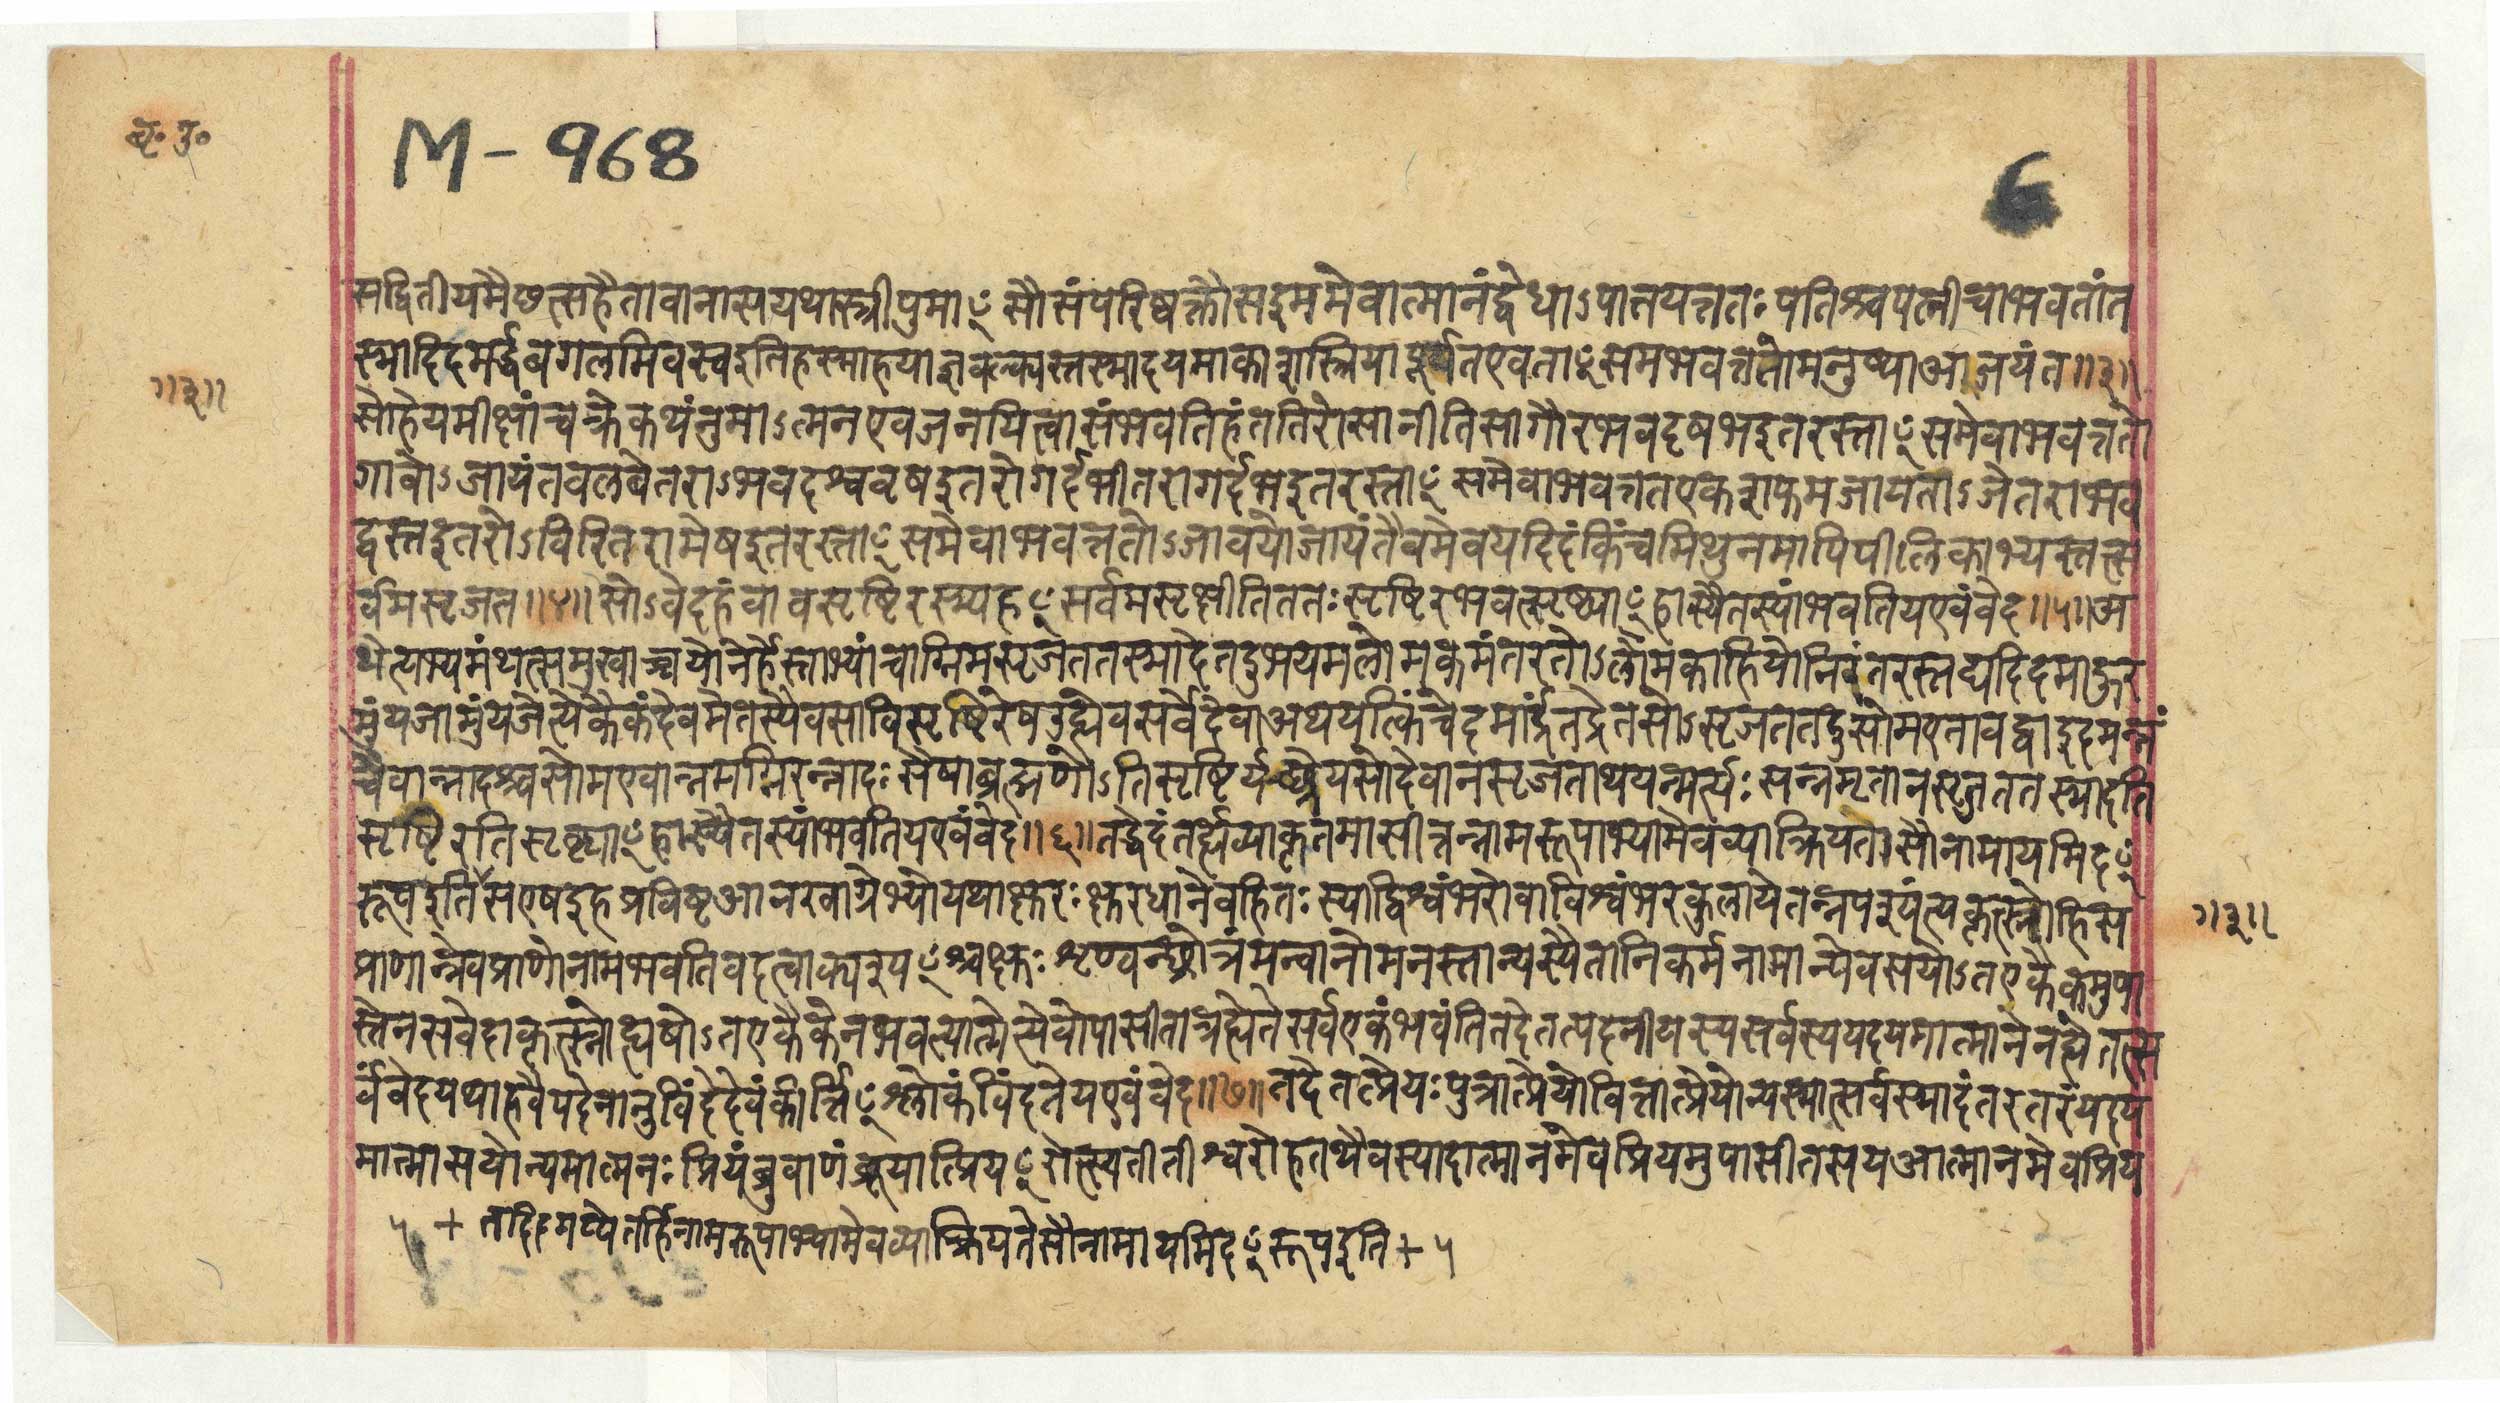 बृ॰ उ॰
M - 968
6
सद्वितीयमैछत्सहैतावानासयथास्त्रीपुमाꣳसौसंपरिष्वक्तौसइममेवात्मानंद्वेधाऽपातयत्ततः पतिश्चपत्नीचाभवतांत
स्मादिदमर्द्धबृगलमिवस्वइतिहस्माहयाज्ञवल्क्यस्तस्मादयमाकाशस्त्रियापूर्यतएवताꣳसमभवत्ततोमनुष्याअजायंत॥३॥
॥३॥
सोहेयमीक्षांचक्रेकथंनुमाऽत्मनएवजनयित्वासंभवतिहंततिरोसानीतिसागौरभवदृषभइतरस्ताꣳसमेवाभवत्ततो
गावोऽजायंतवलवेतराऽभवदश्ववृषइतरोगर्दभीतरागर्दभइतरस्ताꣳसमेवाभवत्ततएकशफमजायताऽजेतराभव
द्वस्तइतरोऽविरितरामेषइतरस्ताꣳसमेवाभवत्ततोऽजावयोजायंतैवमेवयदिदंकिंचमिथुनमापिपीलिकाभ्यस्तत्स
र्वमसृजत॥४॥सोऽवेदहंवावसृष्टिरस्म्यहꣳसर्वमसृक्षीतिततःसृष्टिरभवत्सृष्ट्याꣳहास्यैतस्यांभवतियएवंवेद॥५॥अ
थेत्यभ्यमंथत्समुखाच्चयोनेर्हस्ताभ्यांचाग्निमसृजततस्मादेतदुभयमलोमकमंतरतोऽलोमकाहियोनिरंतरस्तद्यदिदमाहुर
मुंयजामुंयजेत्येकैकंदेवमेतस्यैवसाविसृष्टिरेषउह्येवसर्वेदेवाअथयत्किंचेदमार्द्रंतद्रेतसोऽसृजततदुसोमएतावद्वाइदमन्नं
चैवान्नादश्चसोमएवान्नमग्निरन्नादःसैषाब्रह्मणोऽतिसृष्टिर्यच्छ्रेयसोदेवानसृजताथयन्मर्त्यःसन्नमृतानसृजततस्मादति
सृष्टिरतिसृष्ट्याꣳहास्यैतस्यांभवतियएवंवेद॥६॥तद्धेदंतर्ह्यव्याकृतमासीत्तन्नामरूपाभ्यामेवव्याक्रियत।सौनामायमिदꣳ
रूपइतिसएषइहप्रविष्टआनखाग्रेभ्योयथाक्षुरःक्षुरधानेवहितःस्याद्विश्वंभरोवाविश्वंभरकुलायेतन्नपश्यंत्यकृत्स्नोहिस
॥३॥
प्राणन्नेवप्राणोनामभवतिवदन्वाक्पश्यꣳश्चक्षुःशृण्वन्श्रोत्रंमन्वानोमनस्तान्यस्यैतानिकर्मनामान्येवसयोऽतएकैकमुपा
स्तेनसवेदाकृत्स्नोह्येषोऽतएकैकेनभवत्यात्मेत्येवोपासीतात्रह्येतेसर्वएकंभवंतितदेतत्पदनीयमस्यसर्वस्ययदयमात्मानेनह्येतत्स
र्वंवेदयथाहवैपदेनानुविंदेदेवंकीर्त्तिꣳश्लोकंविंदतेयएवंवेद॥७॥तदेतत्प्रेयःपुत्रात्प्रेयोवित्तात्प्रेयोन्यस्मात्सर्वस्मादंतरतरंयदय
मात्मासयोन्यमात्मनःप्रियंब्रुवाणंब्रूयात्प्रियꣳरोत्स्यतीतीश्वरोहतथैवस्यादात्मानमेवप्रियमुपासीतसयआत्मानमेवप्रिय
५ + तदिदमप्येतर्हिनामरूपाभ्यामेवव्याक्रियतेसौनामायमिदꣳरूपइति+ ५